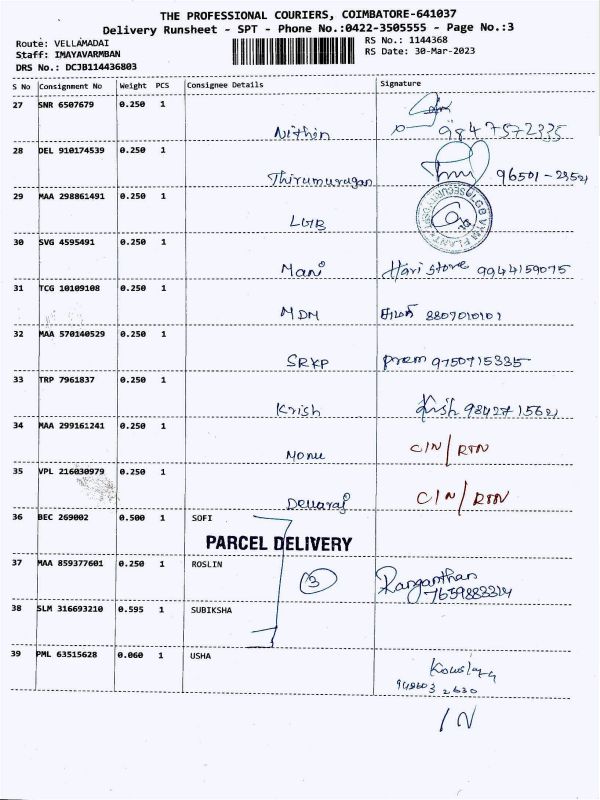 THE PROFESSIONAL COURIERS, COIMBATORE-641037
Delivery Runsheet - SPT - Phone No.:0422-3505555 - Page No.:3
Route: VELLAMADAI RS No.: 1144368
Staff: IMAYAVARMBAN RS Date: 30-Mar-2023
DRS No.: DCJB114436803
S No Consignment No Weight PCS Consignee Details Signature
27 SNR 6507679 0.250 1
Nithin 9847572335
28 DEL 910174539 0.250 1
Thirumurugan 96501-23521
29 MAA 298861491 0.250 1
LGB
30 SVG 4595491 0.250 1
Mani Hari store 9944159075
31 TCG 10109108 0.250 1
MDM 8807010101
32 MAA 570140529 0.250 1
SRKP Prem 9750715335
33 TRP 7961837 0.250 1
Krish Krish 9842715621
34 MAA 299161241 0.250 1
Monu CIN/RTN
35 VPL 216030979 0.250 1
Devaraj CIN/RTN
36 BEC 269002 0.500 1 SOFI
PARCEL DELIVERY
37 MAA 859377601 0.250 1 ROSLIN
3 Ranganthan
7659883324
38 SLM 316693210 0.595 1 SUBIKSHA
39 PML 63515628 0.060 1 USHA
IN